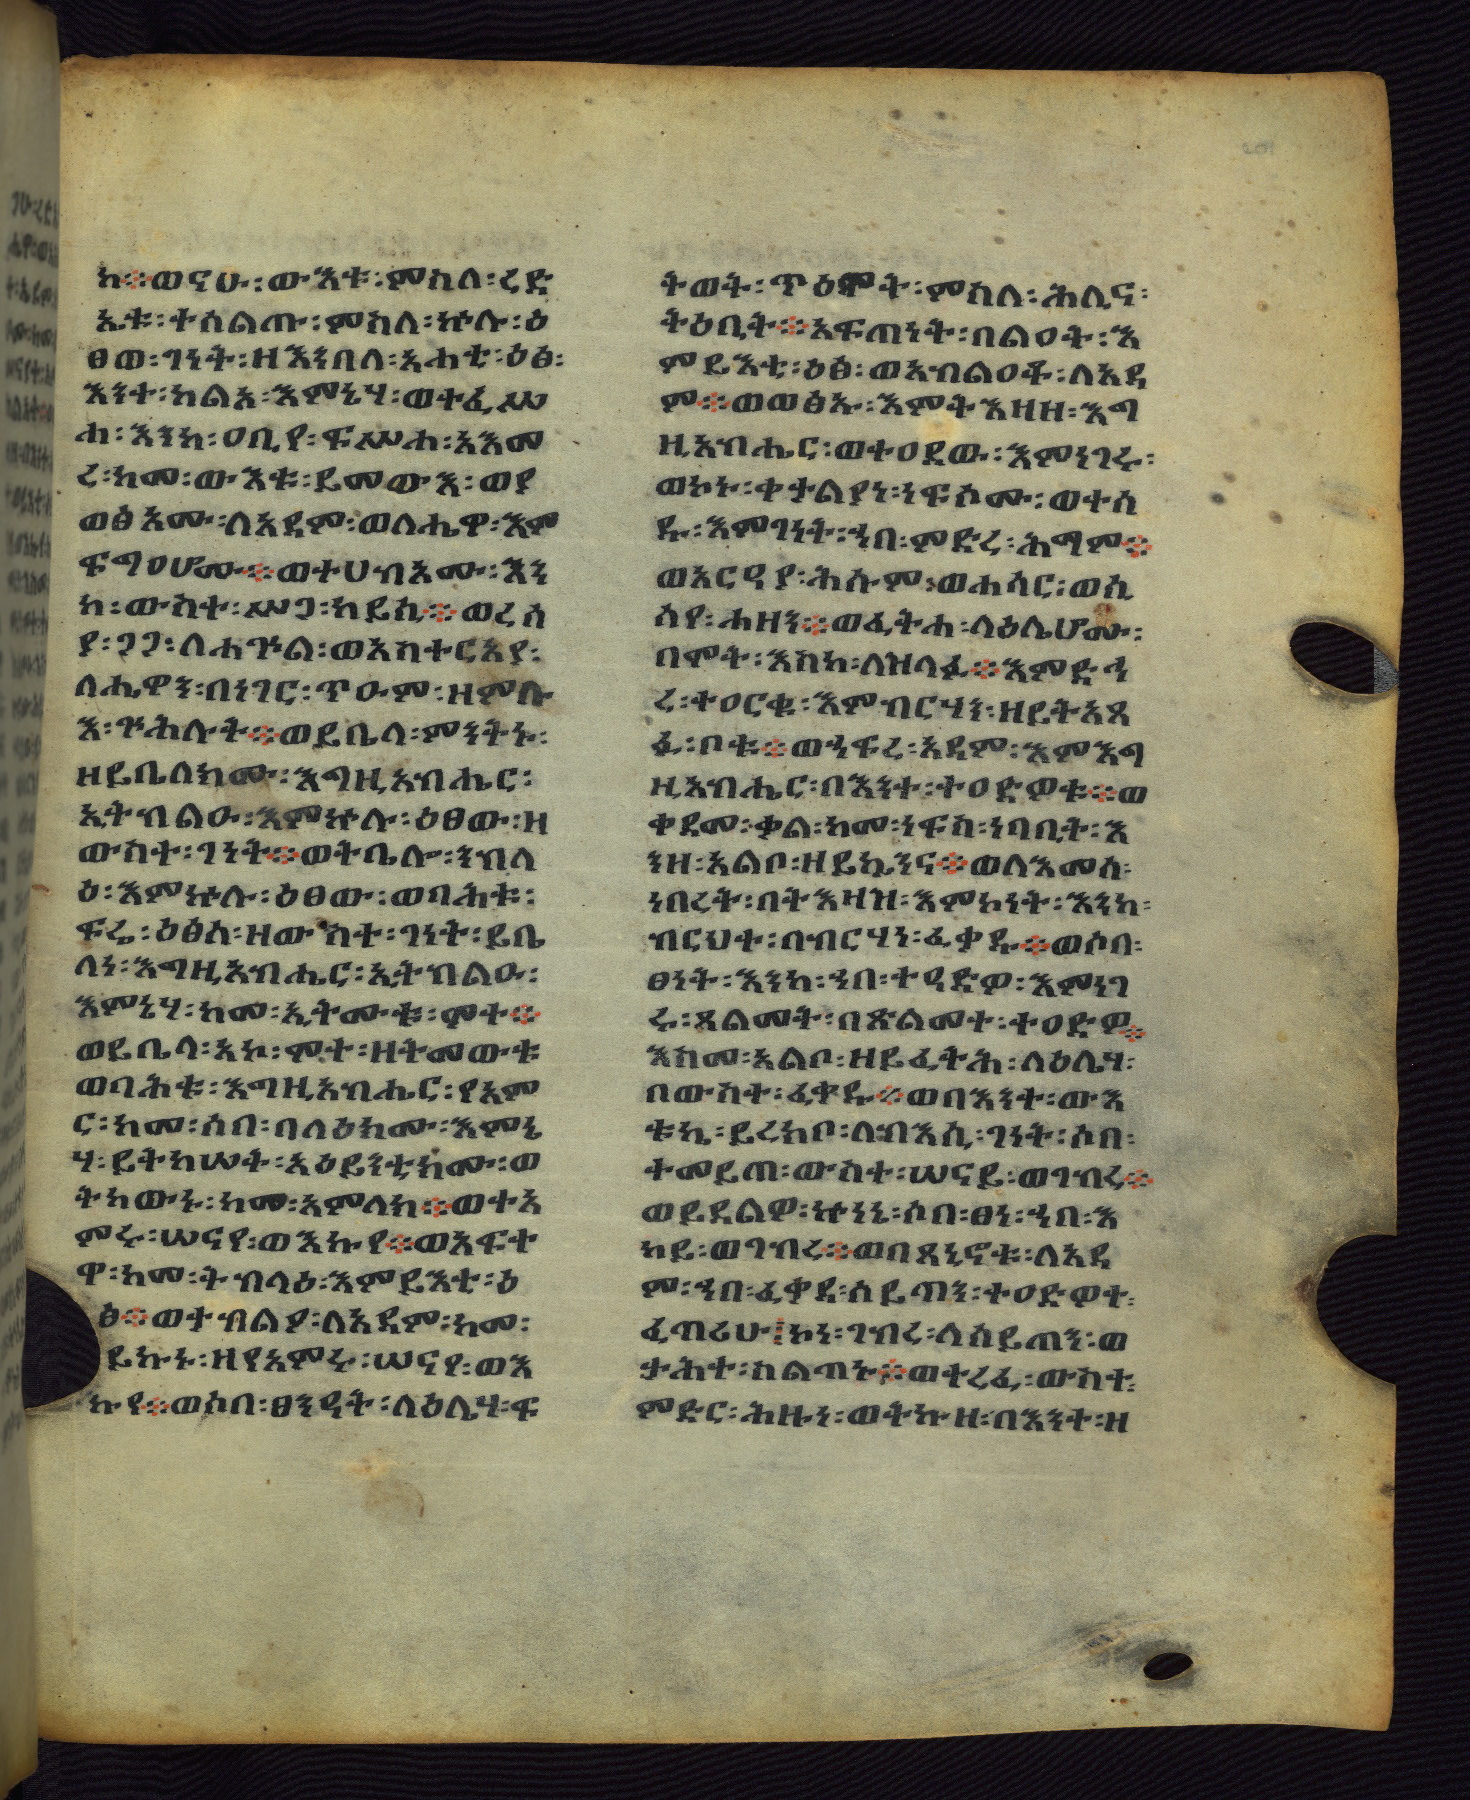 ከ፨ወናሁ፡ውእቱ፡ምስለ፡ረድ
ኤቱ፡ተስልጡ፡ምስለ፡ኵሉ፡ዕ
ፀወ፡ገነት፡ዘእንበለ፡አሐቲ፡ዕፅ፡
እንተ፡ከልአ፡እምኔሃ፡ወተፈሥ
ሐ፡እንከ፡ዐቢየ፡ፍሥሐ፡አእመ
ረ፡ከመ፡ውእቱ፡ይመውእ፡ወያ
ወፅእሙ፡ለአዳም፡ወለሔዋ፡እም
ፍግዐሆሙ፨ወተሀብአሙ፡እን
ከ፡ውስተ፡ሥጋ፡ከይሲ፨ወረሰ
ያ፡ጋጋ፡ለሐጕል፡ወአስተርአያ፡
ለሔዋን፡በነገር፡ጥዑም፡ዘምሉ
እ፡ጕሕሉት፨ወይቤላ፡ምንትኑ፡
ዘይቤለክሙ፡እግዚአብሔር፡
ኢትብልዑ፡እምኵሉ፡ዕፀው፡ዘ
ውስተ፡ገነት፨ወትቤሎ፡ንብላ
ዕ፡እምኵሉ፡ዕፀው፡ወባሕቱ፡
ፍሬ፡ዕፅሰ፡ዘውስተ፡ገነት፡ይቤ
ለነ፡እግዚአብሔር፡ኢትብልዑ፡
እምኔሃ፡ከመ፡ኢትሙቱ፡ሞተ፨
ወይቤላ፡አኮ፡ሞተ፡ዘትመውቱ
ወባሕቱ፡እግዚአብሔር፡የአም
ር፡ከመ፡ሶበ፡በላዕክሙ፡እምኔ
ሃ፡ይትከሠት፡አዕይንቲክሙ፡ወ
ትከውኑ፡ከመ፡አምላክ፨ወተአ
ምሩ፡ሠናየ፡ወእኩየ፨ወአፍተ
ዋ፡ከመ፡ትብላዕ፡እምይእቲ፡ዕ
ፅ፨ወተብልዖ፡ለአዳም፡ከመ፡
ይኩኑ፡ዘየአምሩ፡ሠናየ፡ወእ
ኩየ፨ወሶበ፡ፀንዳት፡ላዕሌሃ፡ፍ
ትወት፡ጥዕሞት፡ምስለ፡ሕሊና፡
ትዕቢት፨አፍጠነት፡በልዖት፡እ
ምይእቲ፡ዕፅ፡ወአብልዐቶ፡ለአዳ
ም፨ወወፅኡ፡እምትእዛዘ፡እግ
ዚአብሔር፡ወተዐደው፡እምነገሩ፡
ወኮኑ፡ቀታልያነ፡ነፍሶሙ፡ወተሰ
ዱ፡እምገነት፡ኀበ፡ምድረ፡ሕማም፨
ወአርዳያ፡ሕሱም፡ወሐሳር፡ወሲ
ሳየ፡ሐዘን፨ወፈትሐ፡ላዕሌሆሙ፡
በሞት፡እስከ፡ለዝላፉ፨እምድኅ
ረ፡ተዐርቁ፡እምብርሃን፡ዘይትአጸ
ፉ፡ቦቱ፨ወኀፍረ፡አዳም፡እምእግ
ዚአብሔር፡በእንተ፡ተዐድዎቱ፨ወ
ቀደመ፡ቃል፡ከመ፡ነፍስ፡ነባቢት፡እ
ንዘ፡አልቦ፡ዘይኴንና፨ወለእመሰ፡
ነበረት፡በትእዛዝ፡እምኮነት፡እንከ፡
ብርህተ፡በብርሃነ፡ፈቃዱ፨ወሶበ፡
ፀነት፡እንከ፡ኀበ፡ተዓድዎ፡እምነገ
ሩ፡ጸልመት፡በጽልመተ፡ተዐድዎ፨
እስመ፡አልቦ፡ዘይፈትሕ፡ላዕሌሃ፡
በውስተ፡ፈቃዱ፨ወበእንተ፡ውእ
ቱኒ፡ይረክቦ፡ለብእሲ፡ገነት፡ሶበ፡
ተመይጠ፡ውስተ፡ሠናይ፡ወገብረ፨
ወይደልዎ፡ኵነኔ፡ሶበ፡ፀነ፡ኀበ፡እ
ከይ፡ወገብረ፨ወበጸኒኖቱ፡ለአዳ
ም፡ኀበ፡ፈቃደ፡ሰይጣን፡ተዐድዎተ፡
ፈጣሪሁ፡ኮነ፡ገብረ፡ለሰይጣን፡ወ
ታሕተ፡ስልጣኑ፨ወተረፈ፡ውስተ፡
ምድር፡ሕዙነ፡ወትኩዘ፡በእንተ፡ዘ